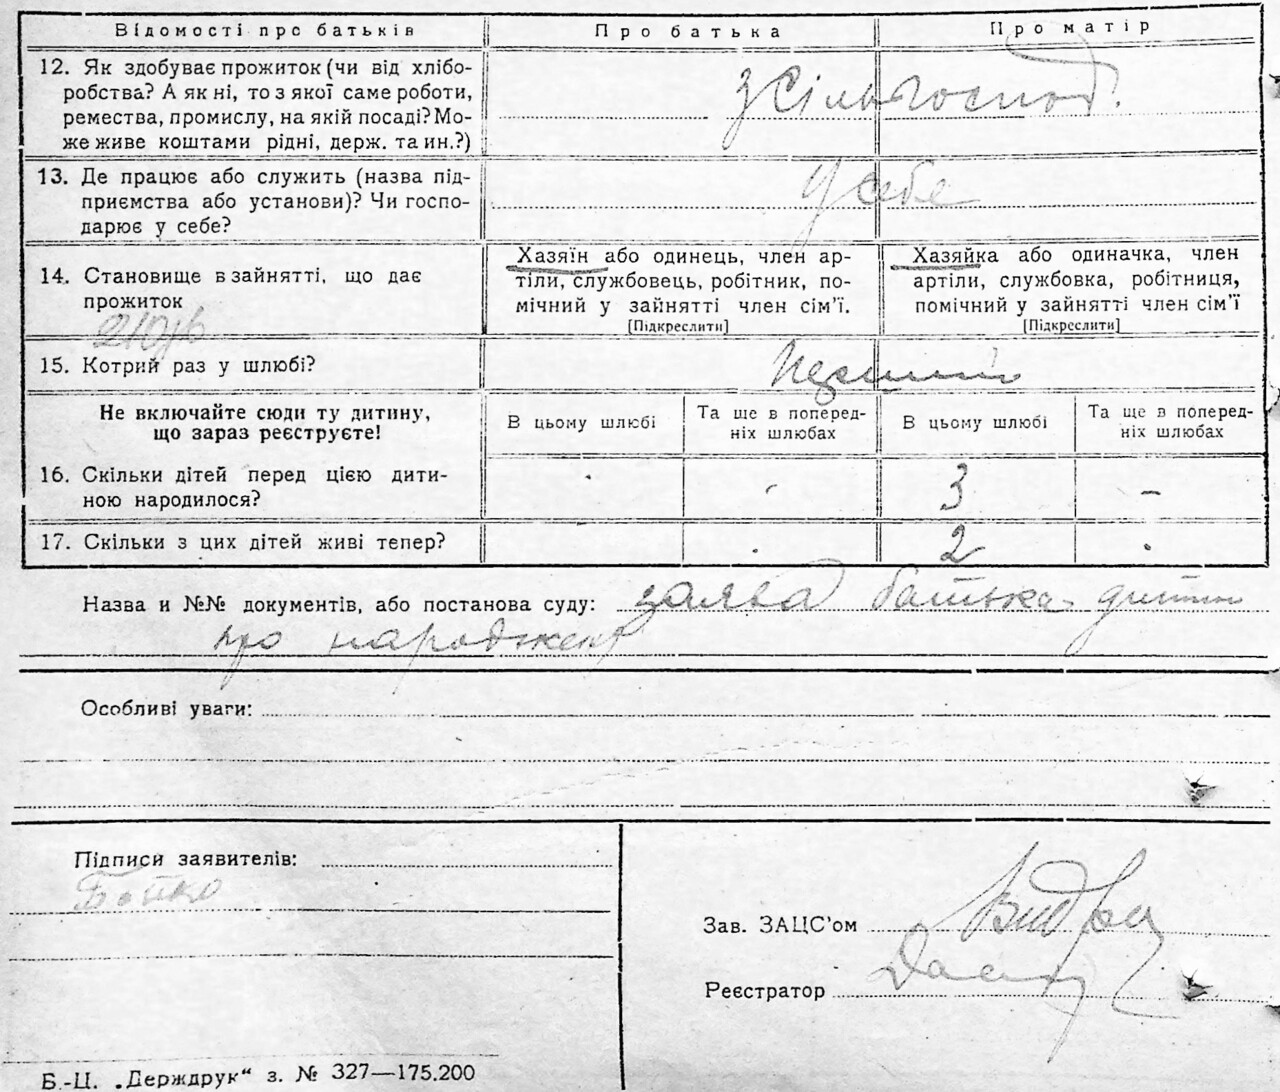 Відомості про батьків Про батька Про матір
12. Як здобуває прожиток (чи від хлібо-
робства? А як ні, то з якої саме роботи,
ремества, промислу, на якій посаді? Мо-
же живе коштами рідні, держ. та ин.?)
з сільгоспод.
13. Де працює або служить (назва під-
приємства або установи)? Чи госпо-
дарює у себе?
У себе
14. Становище в зайнятті, що дає
прожиток
Хазяїн або одинець, член ар-
тіли, службовець, робітник, по-
мічний у зайнятті член сім'ї.
[Підкреслити]
Хазяйка або одиначка, член
артіли, службовка, робітниця,
помічний у зайнятті член сім'ї
[Підкреслити]
15. Котрий раз у шлюбі?
Перший
Не включайте сюди ту дитину,
що зараз реєструєте!
В цьому шлюбі
Та ще в поперед-
ніх шлюбах
В цьому шлюбі
Та ще в поперед-
ніх шлюбах
16. Скільки дітей перед цією дити-
ною народилося?
3 –
17. Скільки з цих дітей живі тепер?
2
Назва и №№ документів, або постанова суду: заява батька дитини
про народжен
Особливі уваги:
Підписи заявителів:
Бойко
Зав. ЗАЦС'ом
Реєстратор
Б.-Ц. „Держдрук“ з. № 327—175.200